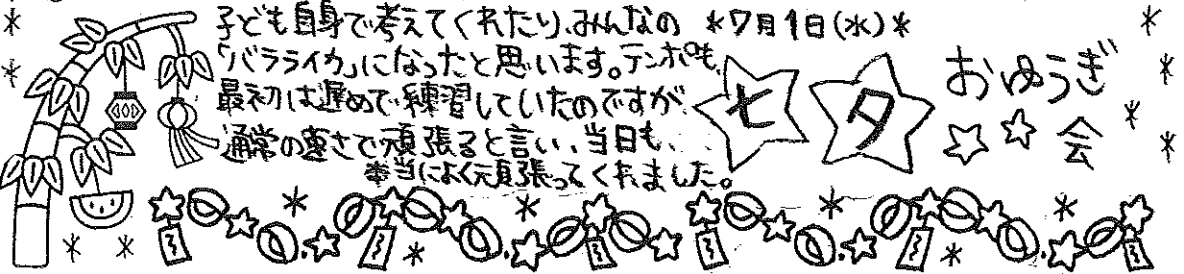 子ども自身で考えてくれたり、みんなの
「バラライカ」になったと思います。テンポも、
最初は遅めで練習していたのですが、
通常の速さで頑張ると言い、当日も、
本当によく頑張ってくれました。
*7月1日(水)*
七夕
おゆうぎ
会